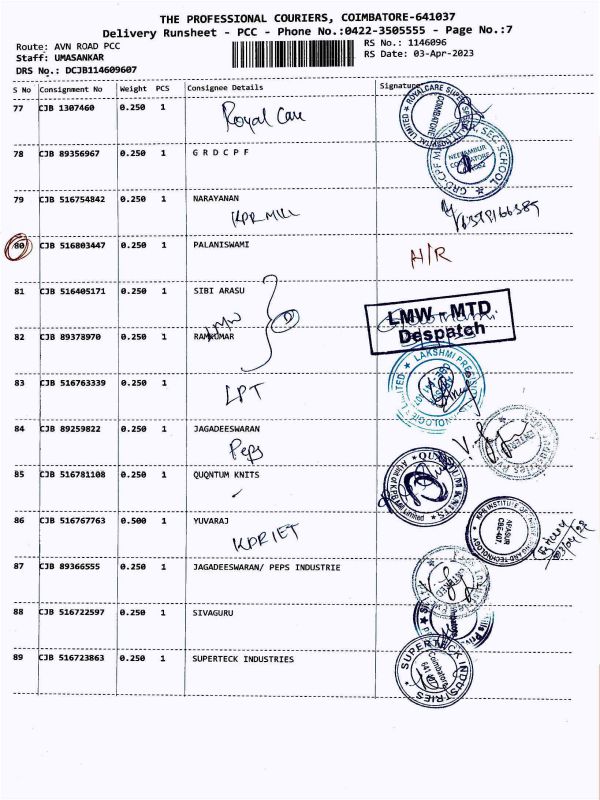 THE PROFESSIONAL COURIERS, COIMBATORE-641037
Delivery Runsheet - PCC - Phone No.:0422-3505555 - Page No.:7
Route: AVN ROAD PCC
RS No.: 1146096
Staff: UMASANKAR
RS Date: 03-Apr-2023
DRS No.: DCJB114609607
S No Consignment No Weight PCS Consignee Details Signature
77 CJB 1307460 0.250 1 Royal Care
78 CJB 89356967 0.250 1 G R D C P F
79 CJB 516754842 0.250 1 NARAYANAN
KPR Mill
80 CJB 516803447 0.250 1 PALANISWAMI
H/R
81 CJB 516405171 0.250 1 SIBI ARASU
LMW - MTD
Despatch
82 CJB 89378970 0.250 1 RAMKUMAR
LMW
83 CJB 516763339 0.250 1
LPT
84 CJB 89259822 0.250 1 JAGADEESWARAN
Peps
85 CJB 516781108 0.250 1 QUQNTUM KNITS
QUANTUM KNITS
86 CJB 516767763 0.500 1 YUVARAJ
KPRIET
87 CJB 89366555 0.250 1 JAGADEESWARAN/ PEPS INDUSTRIE
88 CJB 516722597 0.250 1 SIVAGURU
89 CJB 516723863 0.250 1 SUPERTECK INDUSTRIES
SUPERTECK INDUSTRIES
Coimbatore